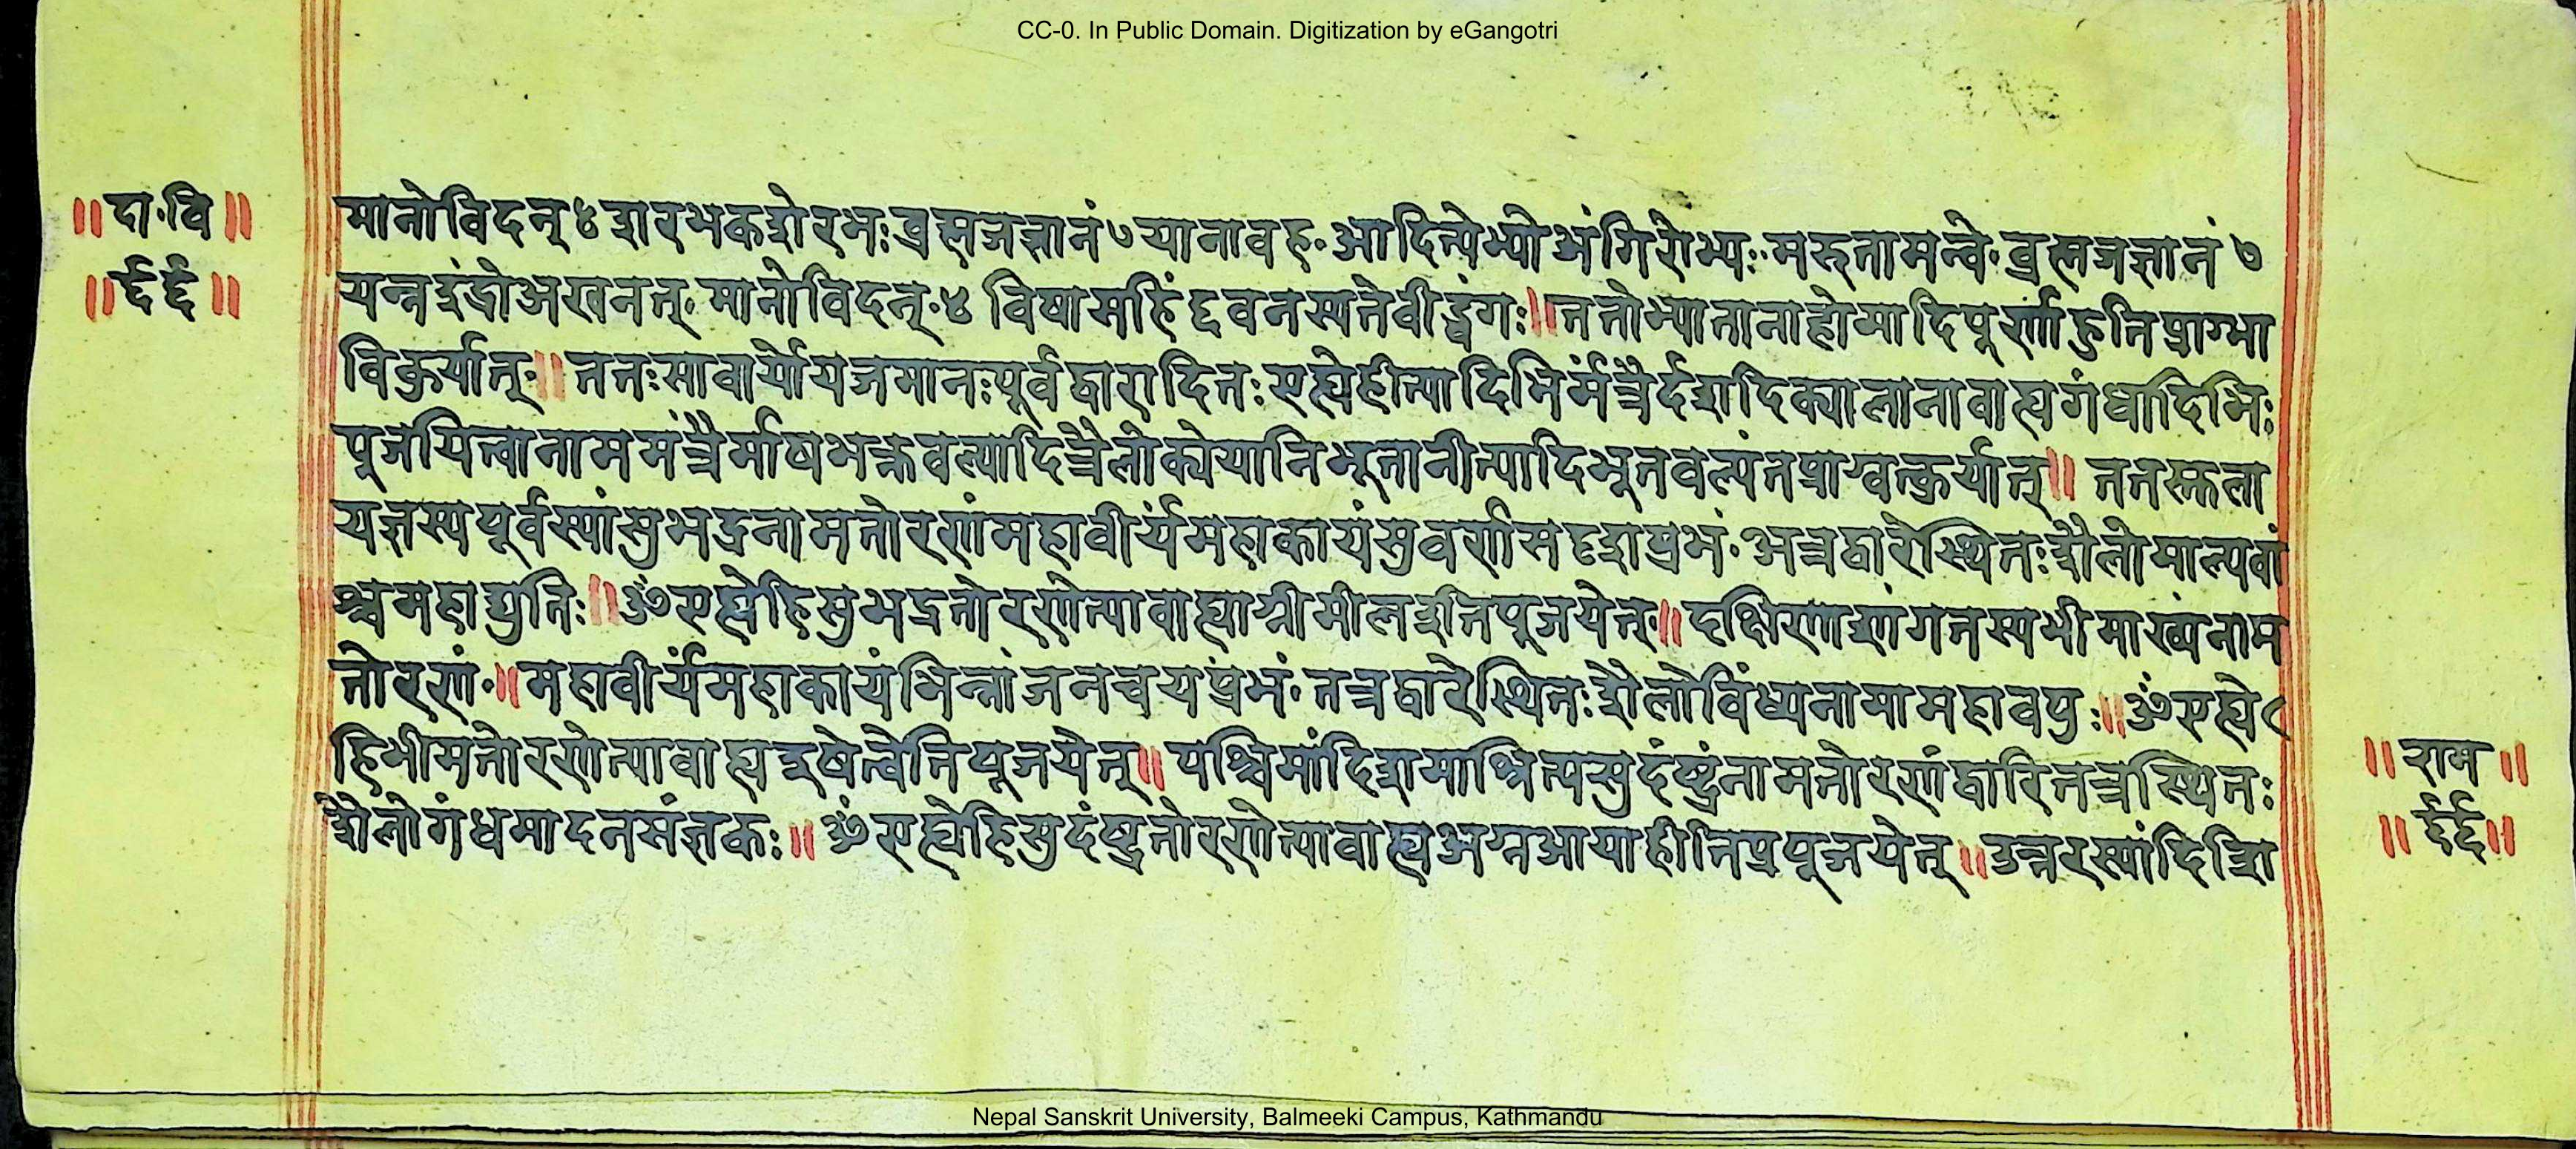 CC-0. In Public Domain. Digitization by eGangotri
॥दा॰वि॥
॥६६॥
मानोविदन्४शरभकशेरभः ब्रह्मजज्ञानं७यानावह॰आदित्येभ्योअंगिरोभ्यः॰मरुतामन्वे॰ब्रह्मजज्ञानं७
यन्नइंद्रोअखनत्॰मानोविदन्॰४ विषामहिं वनस्पतेवीड्वंगः॥ततोभ्यातानाहोमादिपूर्णाहुतिप्राग्भा
विकुर्यात्॥ततःसाचार्योयजमानःपूर्वद्वारादितःएह्येहीत्यादिभिर्मंत्रैर्दशदिक्पालानावाह्यगंधादिभिः
पूजयित्वानाममंत्रैर्माषभक्तवल्यादित्रैलोक्येयानिभूतानीत्यादिभूतवल्यंतप्राग्वत्कुर्यात्॥ततस्तुला
यज्ञस्यपूर्वस्यांसुभद्रनामतोरणंमहावीर्यंमहाकायंसुवर्णसदृशप्रभं॰अत्रद्वारेस्थितःशैलोमाल्यवां
श्चमहाद्युतिः॥ॐएह्येहिसुभद्रतोरणेत्यावाह्याग्नीमीलइतिपूजयेत्॥दक्षिणाशांगतस्यभीमाख्यंनाम
तोरणं॰॥महावीर्यंमहाकायंभिन्नांजनचयप्रभं॰तत्रद्वारेस्थितःशैलोविंध्यनामामहावपुः॥ॐएह्ये
हिभीमतोरणेत्यावाह्यइषेत्वेतिपूजयेत्॥पश्चिमांदिशमाश्रित्यसुदंष्ट्रंनामतोरणंद्वारितत्रस्थितः
शैलोगंधमादनसंज्ञकः॥ॐएह्येहिसुदंष्ट्रतोरणेत्यावाह्यअग्नआयाहीतिप्रपूजयेत्॥उत्तरस्यांदिशि
॥राम॥
॥६६॥
Nepal Sanskrit University, Balmeeki Campus, Kathmandu